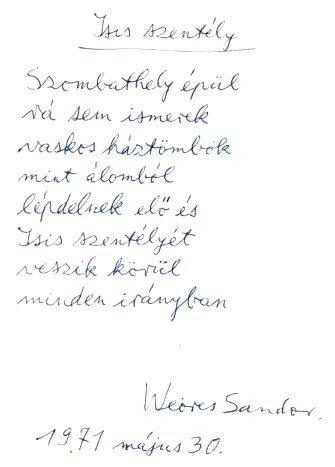 Isis szentély
Szombathely épül
rá sem ismerek
vaskos háztömbök
mint álomból
lépdelnek elő és
Isis szentélyét
veszik körül
minden irányban
Weöres Sándor.
1971 május 30.